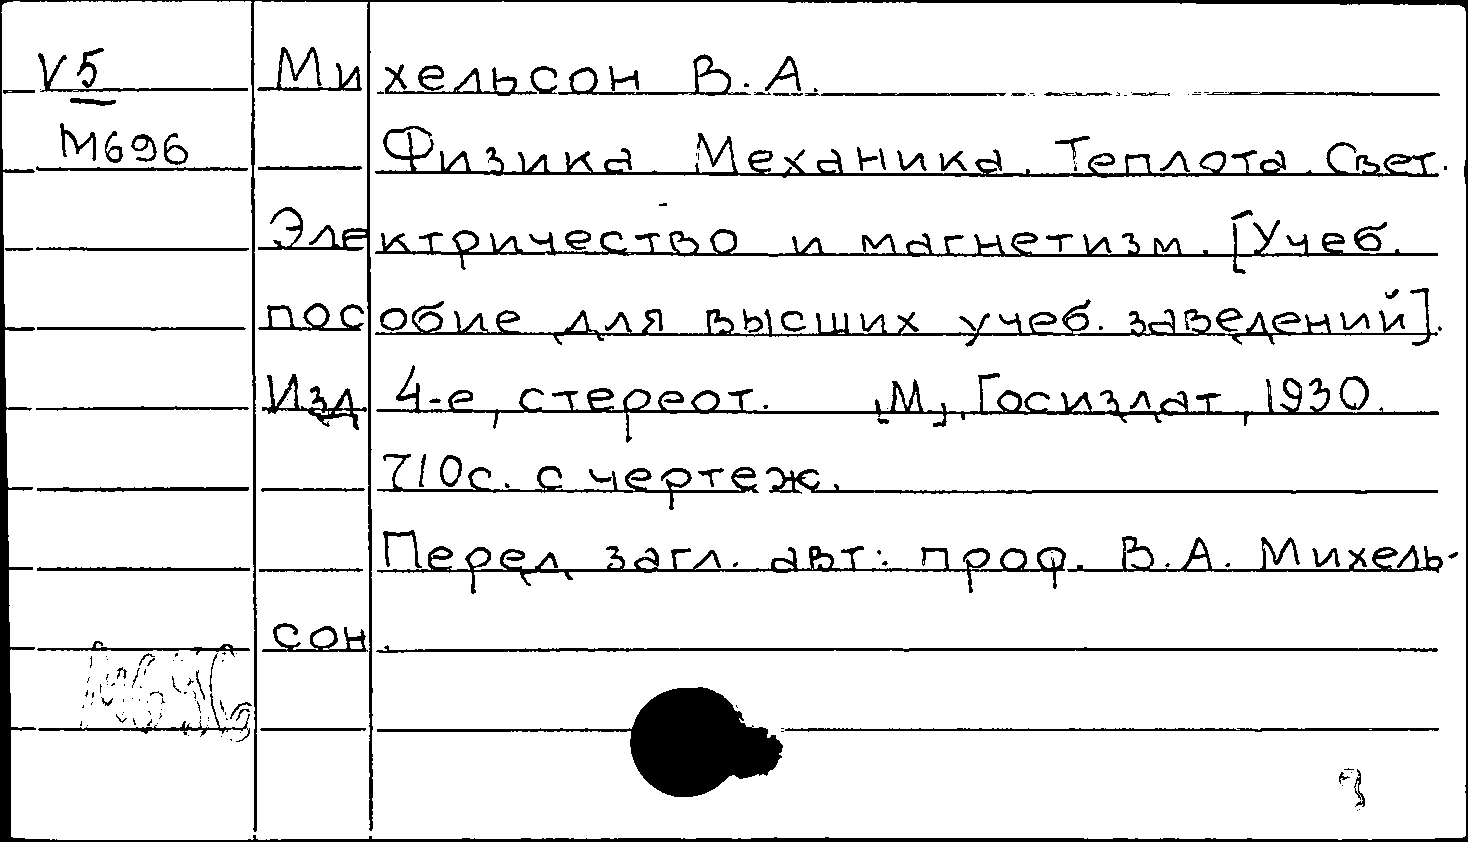 V5 Михельсон В.А.
М696 Физика. Механика. Теплота. Свет.
Электричество и магнетизм. [Учеб.
пособие для высших учеб. заведений].
Изд 4-е, стереот. [М], Госиздат, 1930.
710с. с чертеж.
Перед загл. авт: проф. В.А. Михель-
сон.
М696